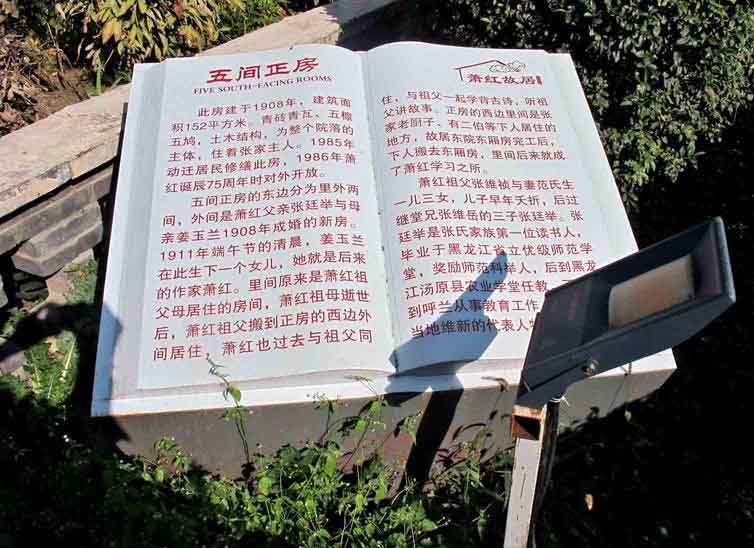 五间正房
FIVE SOUTH-FACING ROOMS
此房建于1908年，建筑面
积152平方米。青砖青瓦、五檩
五鸠，土木结构，为整个院落的
主体，住着张家主人。1985年
动迁居民修缮此房，1986年萧
红诞辰75周年时对外开放。
五间正房的东边分为里外两
间，外间是萧红父亲张廷举与母
亲姜玉兰1908年成婚的新房。
1911年端午节的清晨，姜玉兰
在此生下一个女儿，她就是后来
的作家萧红。里间原来是萧红祖
父母居住的房间，萧红祖母逝世
后，萧红祖父搬到正房的西边外
间居住，萧红也过去与祖父同
萧红故居
住，与祖父一起学背古诗，听祖
父讲故事。正房的西边里间是张
家老厨子、有二伯等下人居住的
地方，故居东院东厢房完工后，
下人搬去东厢房，里间后来就成
了萧红学习之所。
萧红祖父张维祯与妻范氏生
一儿三女，儿子早年夭折，后过
继堂兄张维岳的三子张廷举。张
廷举是张氏家族第一位读书人，
毕业于黑龙江省立优级师范学
堂，奖励师范科举人，后到黑龙
江汤原县农业学堂任教
到呼兰从事教育工作
当地维新的代表人